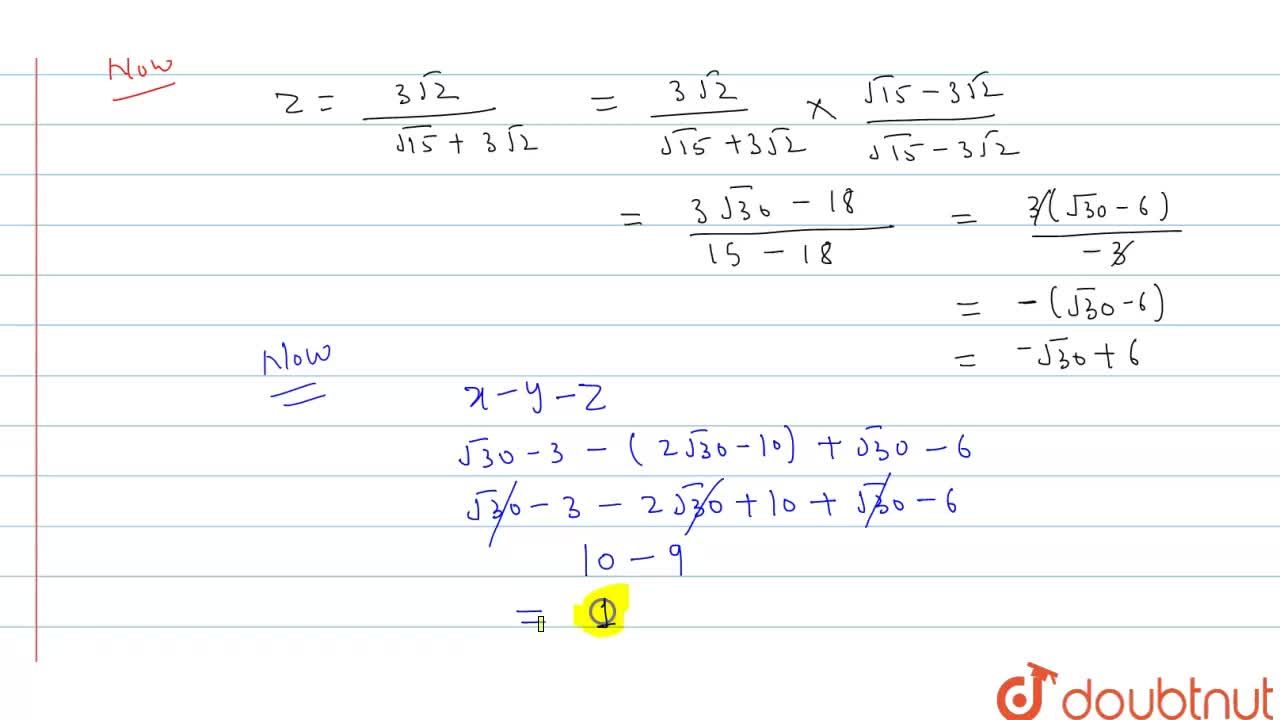 Now
z = 3√2 / (√15 + 3√2) = 3√2 / (√15 + 3√2) × (√15 − 3√2) / (√15 − 3√2)
= (3√30 − 18) / (15 − 18) = 3(√30 − 6) / −3
= −(√30 − 6)
= −√30 + 6
Now
x − y − z
√30 − 3 − (2√30 − 10) + √30 − 6
√30 − 3 − 2√30 + 10 + √30 − 6
10 − 9
= 1
doubtnut